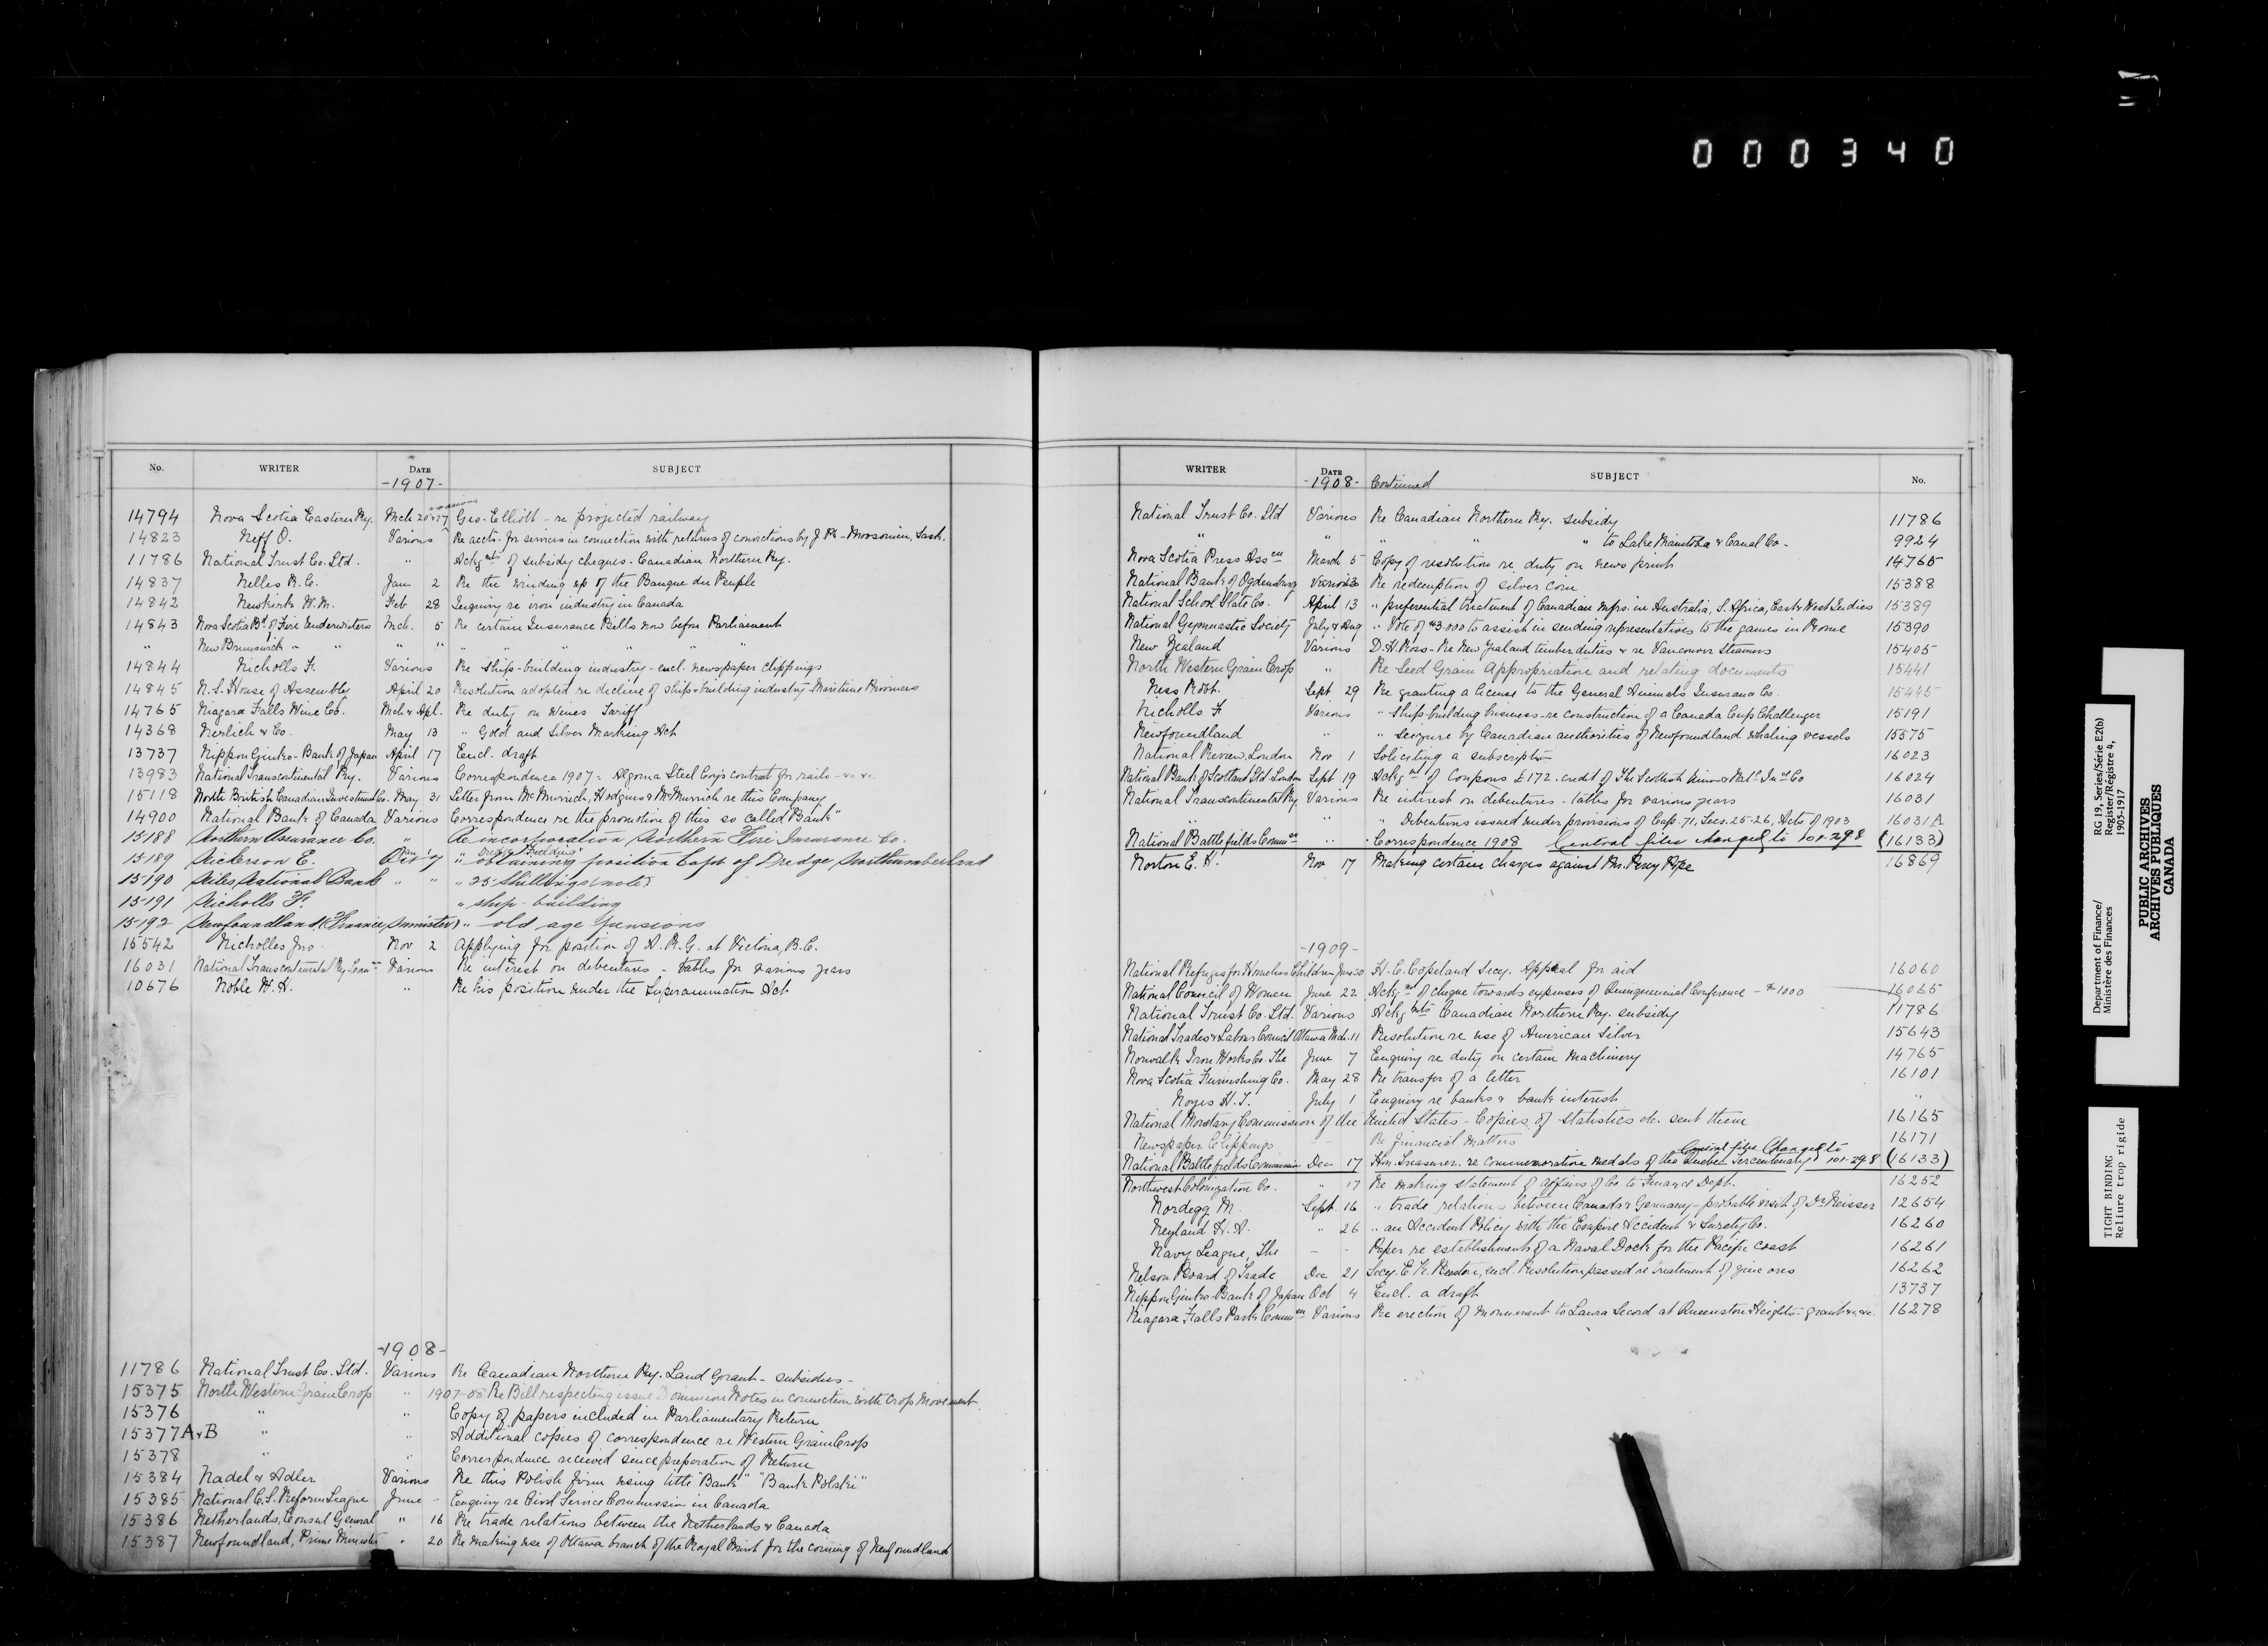 000340
No. WRITER DATE SUBJECT
-1907-
14794 Nova Scotia Eastern Ry. Mch 20 & 27 various Geo. Elliott - re projected railway
14823 Neff O. Various Re accts. for services in connection with returns of convictions by J.Ps - Moosomin, Sask.
11786 National Trust Co. Ltd. " Ackgmts of subsidy cheques. Canadian Northern Ry.
14837 Nelles R. C. Jan 2 Re the winding up of the Banque du Peuple
14842 Newkirk W. M. Feb 28 Inquiry re iron industry in Canada
14843 Nova Scotia Bd of Fire Underwriters Mch. 5 Re certain Insurance Bills now before Parliament
" New Brunswick " " " " " " " " "
14844 Nicholls F. Various Re Ship-building industry - encl. newspaper clippings
14845 N.S. House of Assembly April 20 Resolution adopted re decline of ship-building industry - Maritime Provinces
14765 Niagara Falls Wine Co. Mch & Apl. Re duty on Wines Tariff
14368 Nerlich & Co. May 13 " Gold and Silver Marking Act
13737 Nippon Ginko - Bank of Japan April 17 Encl. draft
13983 National Transcontinental Ry. Various Correspondence 1907 = Algoma Steel Coy's contract for rails - &c &c.
15118 North British Canadian Investment Co. May 31 Letter from McMurrich, Hodgins & McMurrich re this Company
14900 National Bank of Canada Various Correspondence re the promotion of this so called "Bank"
15188 Northern Assurance Co. " Re incorporation Northern Fire Insurance Co.
15189 Nickerson E. " obtaining position Capt of Dredge Northumberland
15190 Niles National Bank " " " 25 Shillings (note)
15191 Nicholls F. " ship-building
15192 Newfoundland (Finance Minister) " old age pensions
15542 Nicholles Jno. Nov 2 Applying for position of A.R.G. at Victoria, B.C.
16031 National Transcontinental Ry. Comn Various Re interest on debentures - tables for various years
10676 Noble W. A. " Re his position under the Superannuation Act.
-1908-
11786 National Trust Co. Ltd. Various Re Canadian Northern Ry. Land Grant - subsidies -
15375 North Western Grain Crop " 1907-08 Re Bill respecting issue Dominion Notes in connection with Crop Movement.
15376 " " Copy of papers included in Parliamentary Return
15377 A & B " " Additional copies of correspondence re Western Grain Crop
15378 " " Correspondence received since preparation of Return
15384 Nadel & Adler Various Re this Polish firm using title "Bank" "Bank Polski"
15385 National C.S. Reform League June - Enquiry re Civil Service Commission in Canada
15386 Netherlands, Consul General " 16 Re trade relations between the Netherlands & Canada
15387 Newfoundland, Prime Minister " 20 Re making use of Ottawa branch of the Royal Mint for the coining of Newfoundland
WRITER DATE SUBJECT No.
-1908- Continued
National Trust Co. Ltd Various Re Canadian Northern Ry. subsidy 11786
" " " " to Lake Manitoba & Canal Co - 9924
Nova Scotia Press Asscn March 5 Copy of resolution re duty on news print 14765
National Bank of Ogdensburg Various Re redemption of silver coin 15388
National School Slate Co. April 13 " preferential treatment of Canadian mfrs. in Australia, S. Africa, East & West Indies 15389
National Gymnastic Society July & Aug " Vote of $3.000 to assist in sending representatives to the games in Rome 15390
New Zealand Various D. H. Ross - Re New Zealand timber duties & re Vancouver Steamers 15405
North Western Grain Crop " Re Seed Grain Appropriation and relating documents 15441
Ness Robt. Sept 29 Re granting a license to the General Animals Insurance Co. 15445
Nicholls F Various " Ship-building business - re construction of a Canada Cup Challenger 15191
Newfoundland " " Seizure by Canadian authorities of Newfoundland whaling vessels 15575
National Review, London Nov 1 Soliciting a subscription 16023
National Bank of Scotland Ltd London Sept 19 Ackgmt of Coupons £172. credit of The Scottish Union & Natl. Ins. Co 16024
National Transcontinental Ry Various Re interest on debentures - tables for various years 16031
" " " Debentures issued under provisions of Cap. 71, Secs. 25-26, Acts of 1903 16031 A
National Battlefields Commn " Correspondence 1908 Central files changed to 101-298 (16133)
Norton E. K. Nov 17 Making certain charges against Mr. Percy Pope 16869
-1909-
National Refuge for Homeless Children June 30 H. C. Copeland Secy. Appeal for aid 16060
National Council of Women June 22 Ackgmt of cheque towards expenses of Quinquennial Conference - $1000 16065
National Trust Co. Ltd. Various Ackgmts Canadian Northern Ry. subsidy 11786
National Trades & Labour Council Ottawa Mch. 11 Resolution re use of American Silver 15643
Norwalk Iron Works Co. The June 7 Enquiry re duty on certain machinery 14765
Nova Scotia Furnishing Co. May 28 Re transfer of a letter 16101
Noyes H. T. July 1 Enquiry re banks & bank interest "
National Monetary Commission of the United States - Copies of statistics etc. sent them 16165
Newspaper Clippings - - Re Financial Matters 16171
National Battlefields Commission Dec 17 Hon. Treasurer. re commemorative medals of the Quebec Tercentenary Central files Changed to 101-298 (16133)
Northwest Colonization Co. " 17 Re making statement of affairs of Co. to Finance Dept. 16252
Nordegg M. Sept. 16 " trade relations between Canada & Germany - probable visit of Dr Neisser 12654
Neyland F. A. " 26 " an Accident Policy with the Empire Accident & Surety Co. 16260
Navy League, The - - Paper re establishment of a Naval Dock for the Pacific Coast 16261
Nelson Board of Trade Dec 21 Secy. E. K. Beeston, encl. Resolution passed re treatment of zinc ores 16262
Nippon Ginko - Bank of Japan Oct 4 Encl. a draft 13737
Niagara Falls Park Commn Various Re erection of Monument to Laura Secord at Queenston Heights - grant &c. &c. 16278
RG 19, Series/Série E2(b)
Register/Régistre 4,
1905-1917
Department of Finance/
Ministère des Finances
PUBLIC ARCHIVES
ARCHIVES PUBLIQUES
CANADA
TIGHT BINDING
Reliure trop rigide